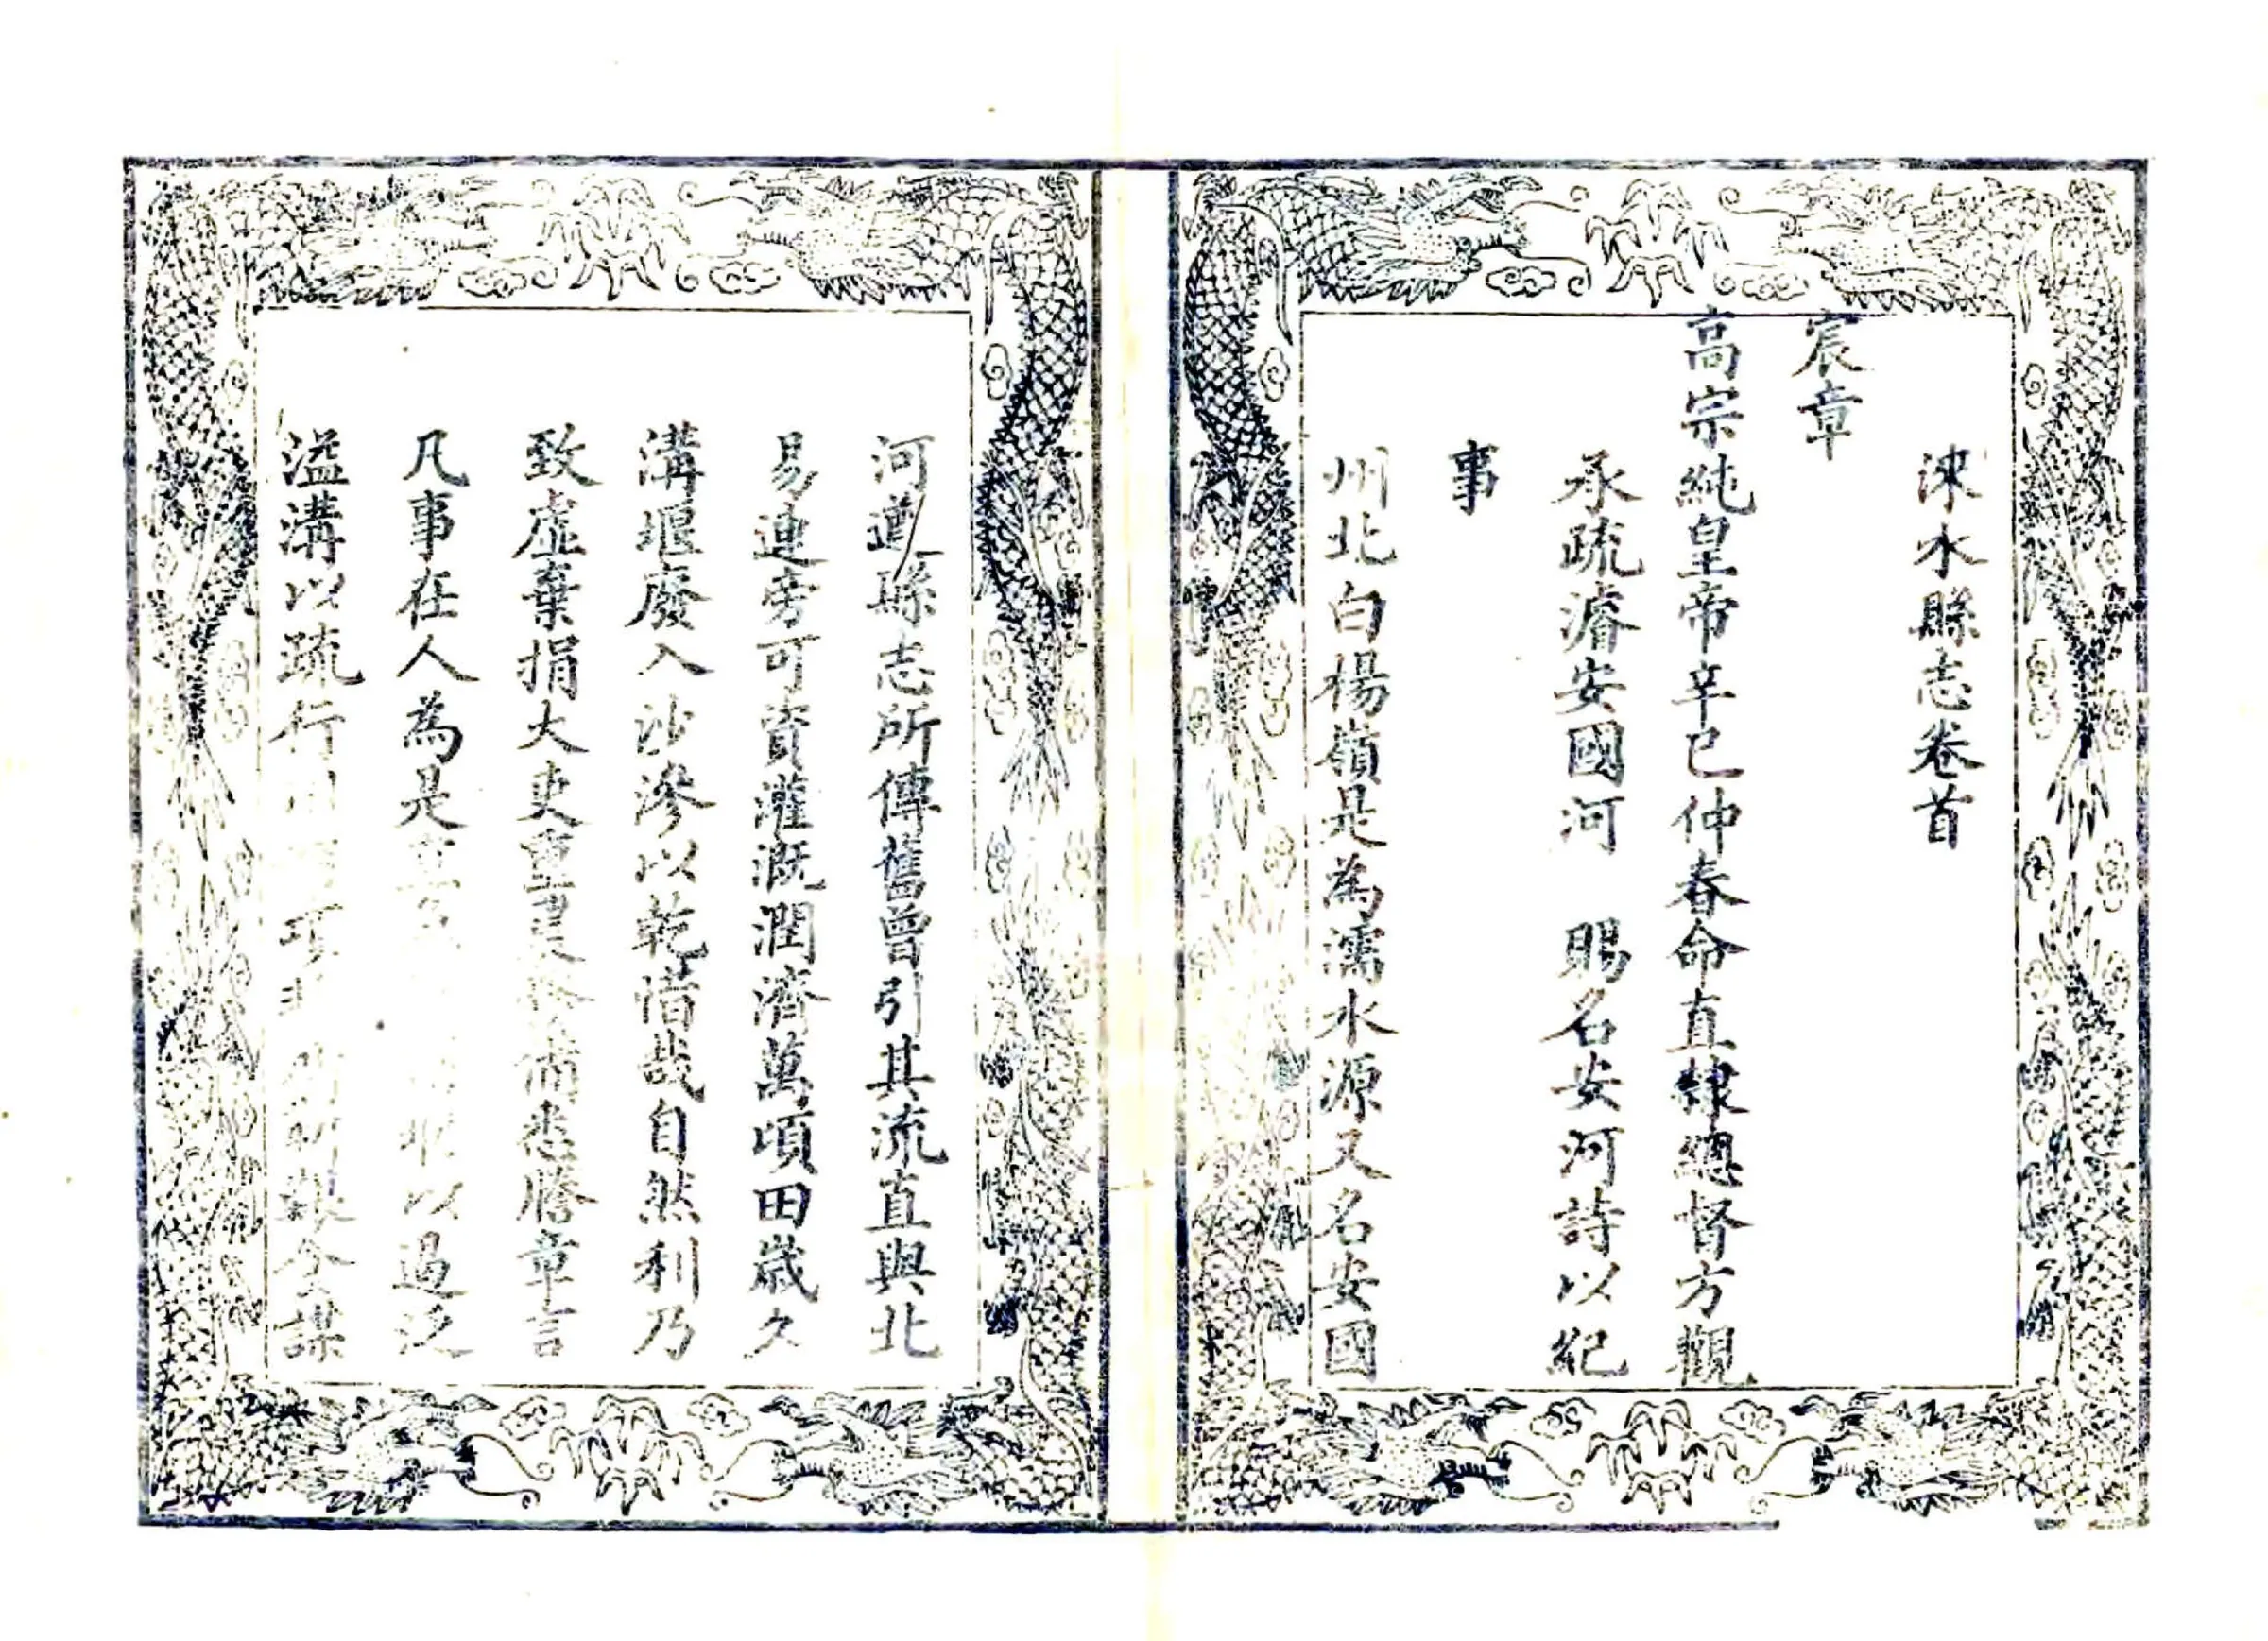 淶水縣志卷首
宸章
高宗純皇帝辛巳仲春命直隸總督方觀
承疏濬安國河　賜名安河詩以紀
事
州北白楊嶺是為濡水源又名安國
河遒縣志所傳舊曾引其流直與北
易連旁可資灌溉潤濟萬頃田歲久
溝堰廢入沙滲以乾惜哉自然利乃
致虛棄捐大吏重農務備悉謄章言
凡事在人為是 以過泛
溢溝以疏行 艱僉謀